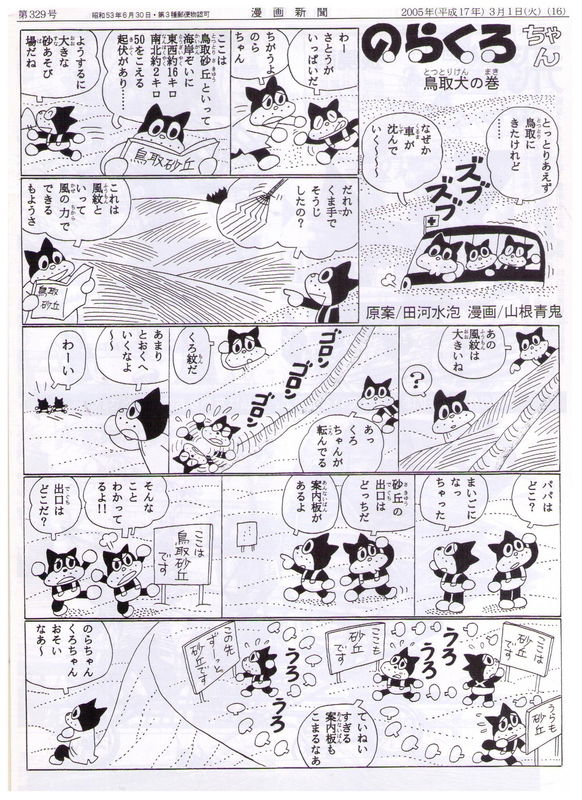 第329号
昭和53年6月30日・第3種郵便物認可
漫画新聞
2005年(平成17年)3月1日(火)(16)
のらくろ
ちゃん
鳥取犬の巻
とっとりけん
まき
とっとりあえず
鳥取に
きたけれど
なぜか
車が
沈んで
いく〜〜
ズブ
ズブ
原案/田河水泡 漫画/山根青鬼
わー
さとうが
いっぱいだ
ちがうよ
のら
ちゃん
ここは
鳥取砂丘といって
海岸ぞいに
東西約16キロ
南北約2キロ
50をこえる
起伏があり…
鳥取砂丘
ようするに
大きな
砂あそび
場だね
だれか
くま手で
そうじ
したの?
これは
風紋と
いって
風の力で
できる
もようさ
鳥取
砂丘
あの
風紋は
大きいね
?
あっ
くろ
ちゃんが
転んでる
ゴロン
ゴロン
くろ紋だ
あまり
とおくへ
いくなよ
〜〜
わーい
パパは
どこ?
まいごに
なっ
ちゃった
砂丘の
出口は
どっちだ
案内板が
あるよ
ここは
鳥取砂丘
です
そんな
こと
わかって
るよ!!
出口は
どこだ?
ここは
砂丘です
うらも
砂丘
うろ
うろ
ここも
砂丘です
ていねい
すぎる
案内板も
こまるなあ
うろ
うろ
この先
ずーっと
砂丘です
のらちゃん
くろちゃん
おそい
なあ〜